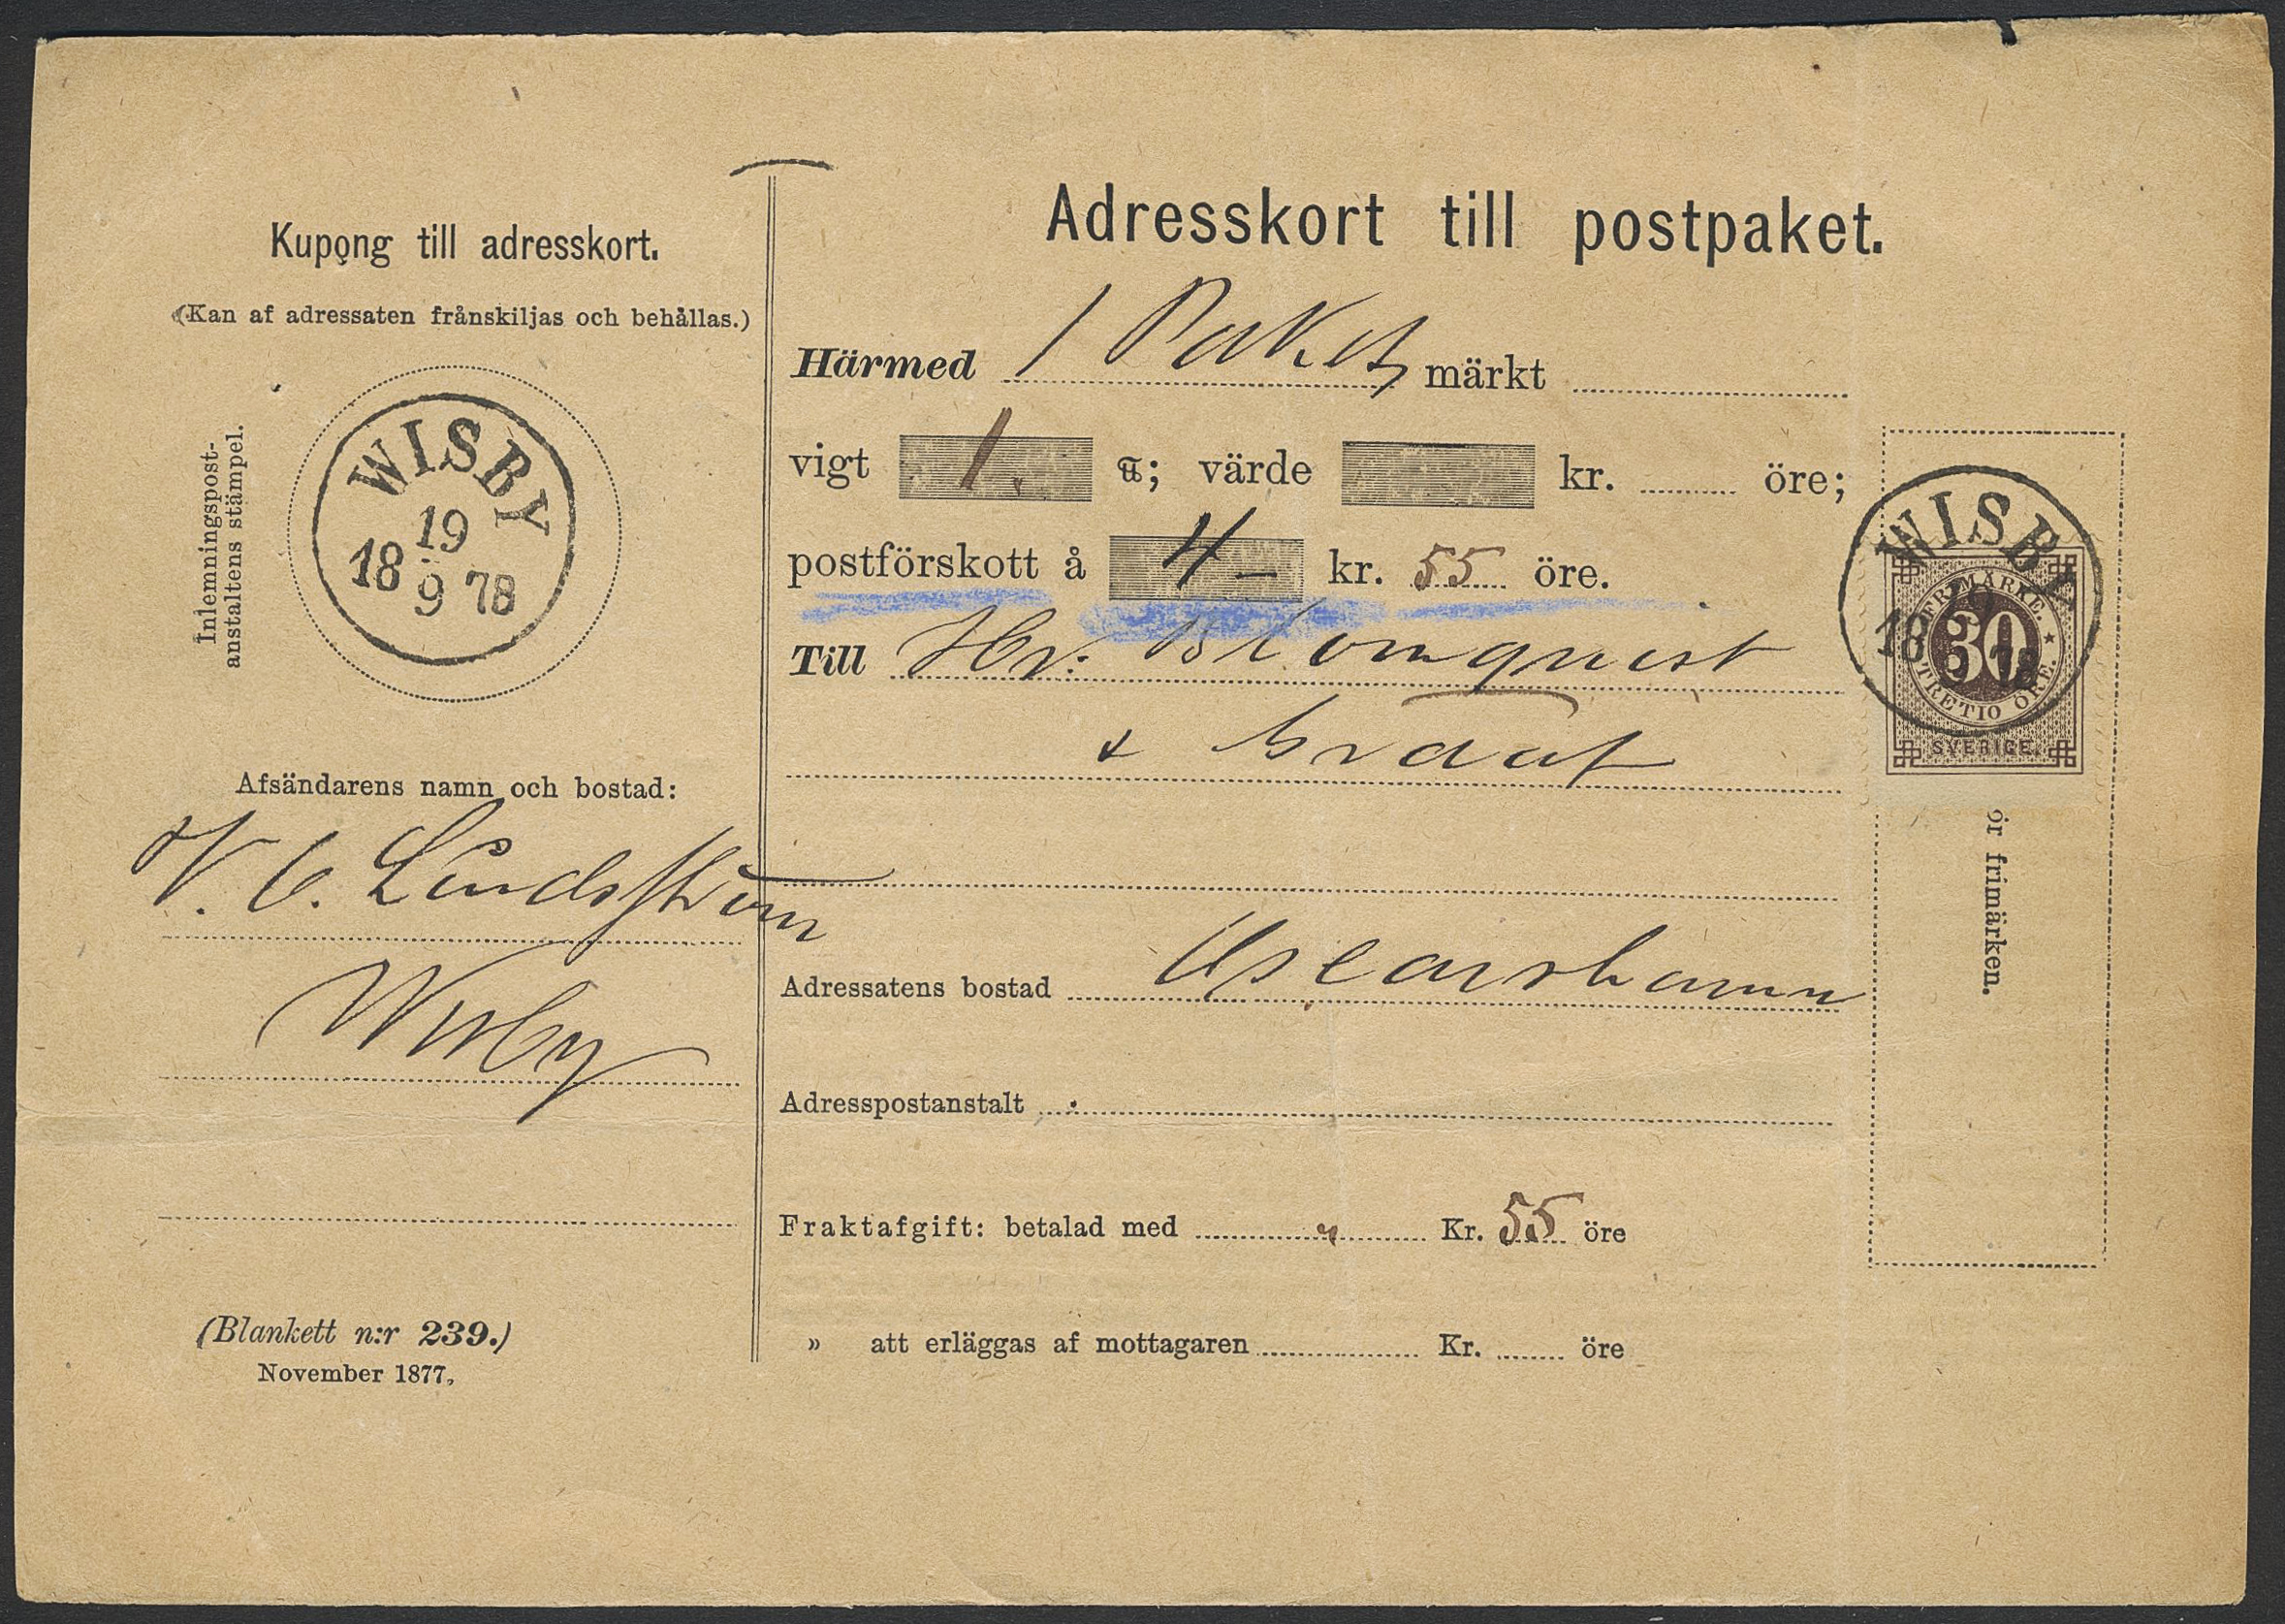 Kupong till adresskort.
(Kan af adressaten frånskiljas och behållas.)
Inlemningspost-
anstaltens stämpel.
WISBY
19
18 9 78
Afsändarens namn och bostad:
C. Lindström
Wisby
(Blankett n:r 239.)
November 1877.
Adresskort till postpaket.
Härmed 1 Paket märkt
vigt 1. ℔; värde kr. öre;
postförskott å 4 – kr. 55 öre.
Till Hr. Blomquist
& Graaf
Adressatens bostad Oscarshamn
Adresspostanstalt
Fraktafgift: betalad med " Kr. 55 öre
" att erläggas af mottagaren Kr. öre
WISBY
18 78
FRIMÄRKE.
30
TRETIO ÖRE.
SVERIGE.
ör frimärken.